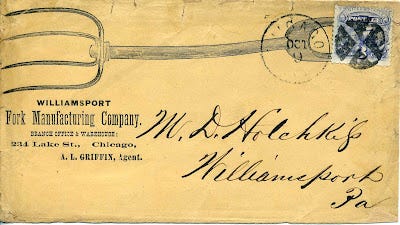 OCT
WILLIAMSPORT
Fork Manufacturing Company.
BRANCH OFFICE & WAREHOUSE:
234 Lake St., Chicago,
A. L. GRIFFIN, Agent.
M. D. Holchkiss
Williamsport
Pa